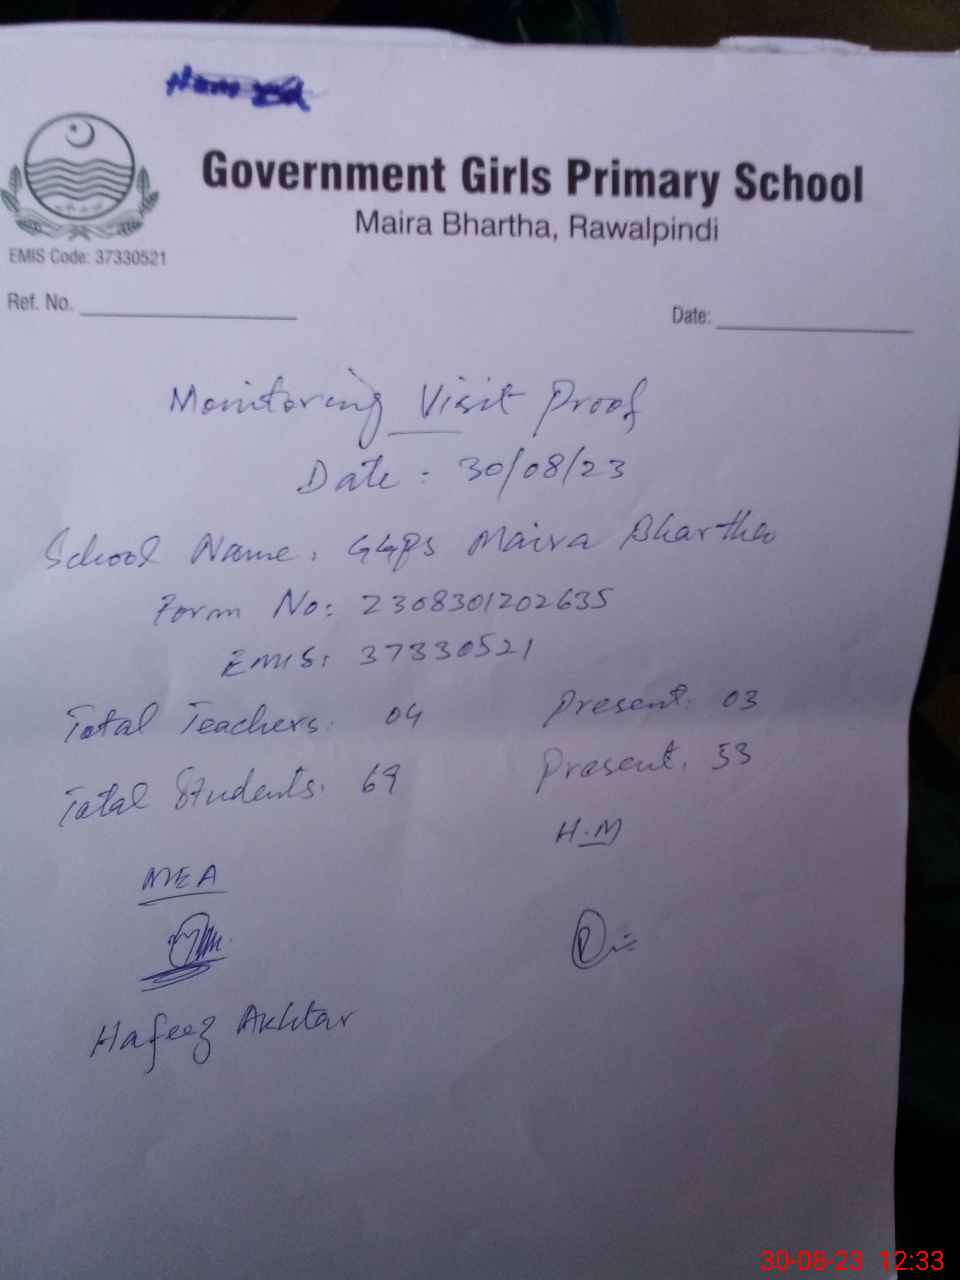 Government Girls Primary School
Maira Bhartha, Rawalpindi
EMIS Code: 37330521
Ref. No.
Date:
Monitoring Visit Proof
Date: 30/08/23
School Name: GGPS Maira Bhartha
Form No: 2308301202635
EMIS: 37330521
Total Teachers: 04 Present: 03
Total Students: 69 Present: 53
H.M
MEA
Hafeez Akhtar
30-08-23 12:33